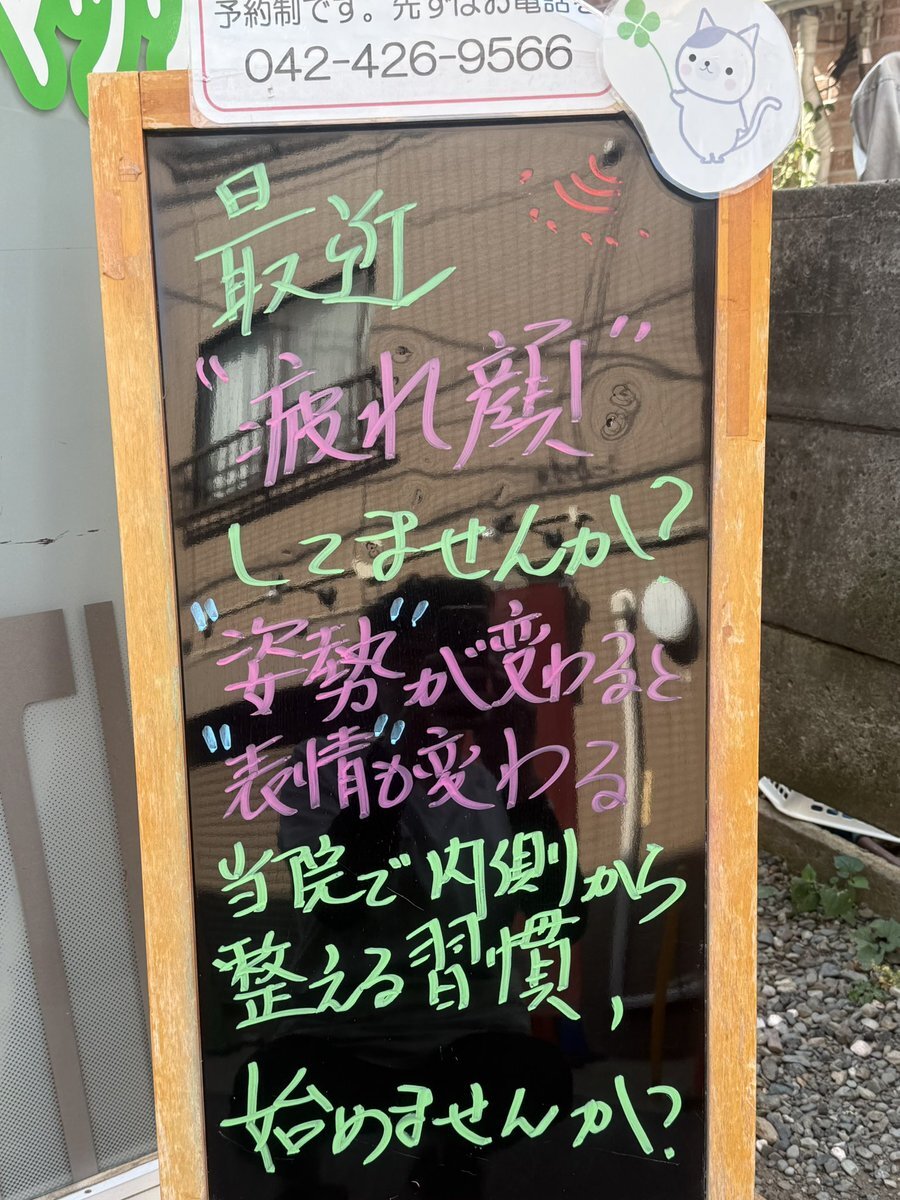 予約制です。先ずはお電話を
042-426-9566
最近
"疲れ顔"
してませんか?
"姿勢"が変わると
"表情"も変わる
当院で内側から
整える習慣,
始めませんか?